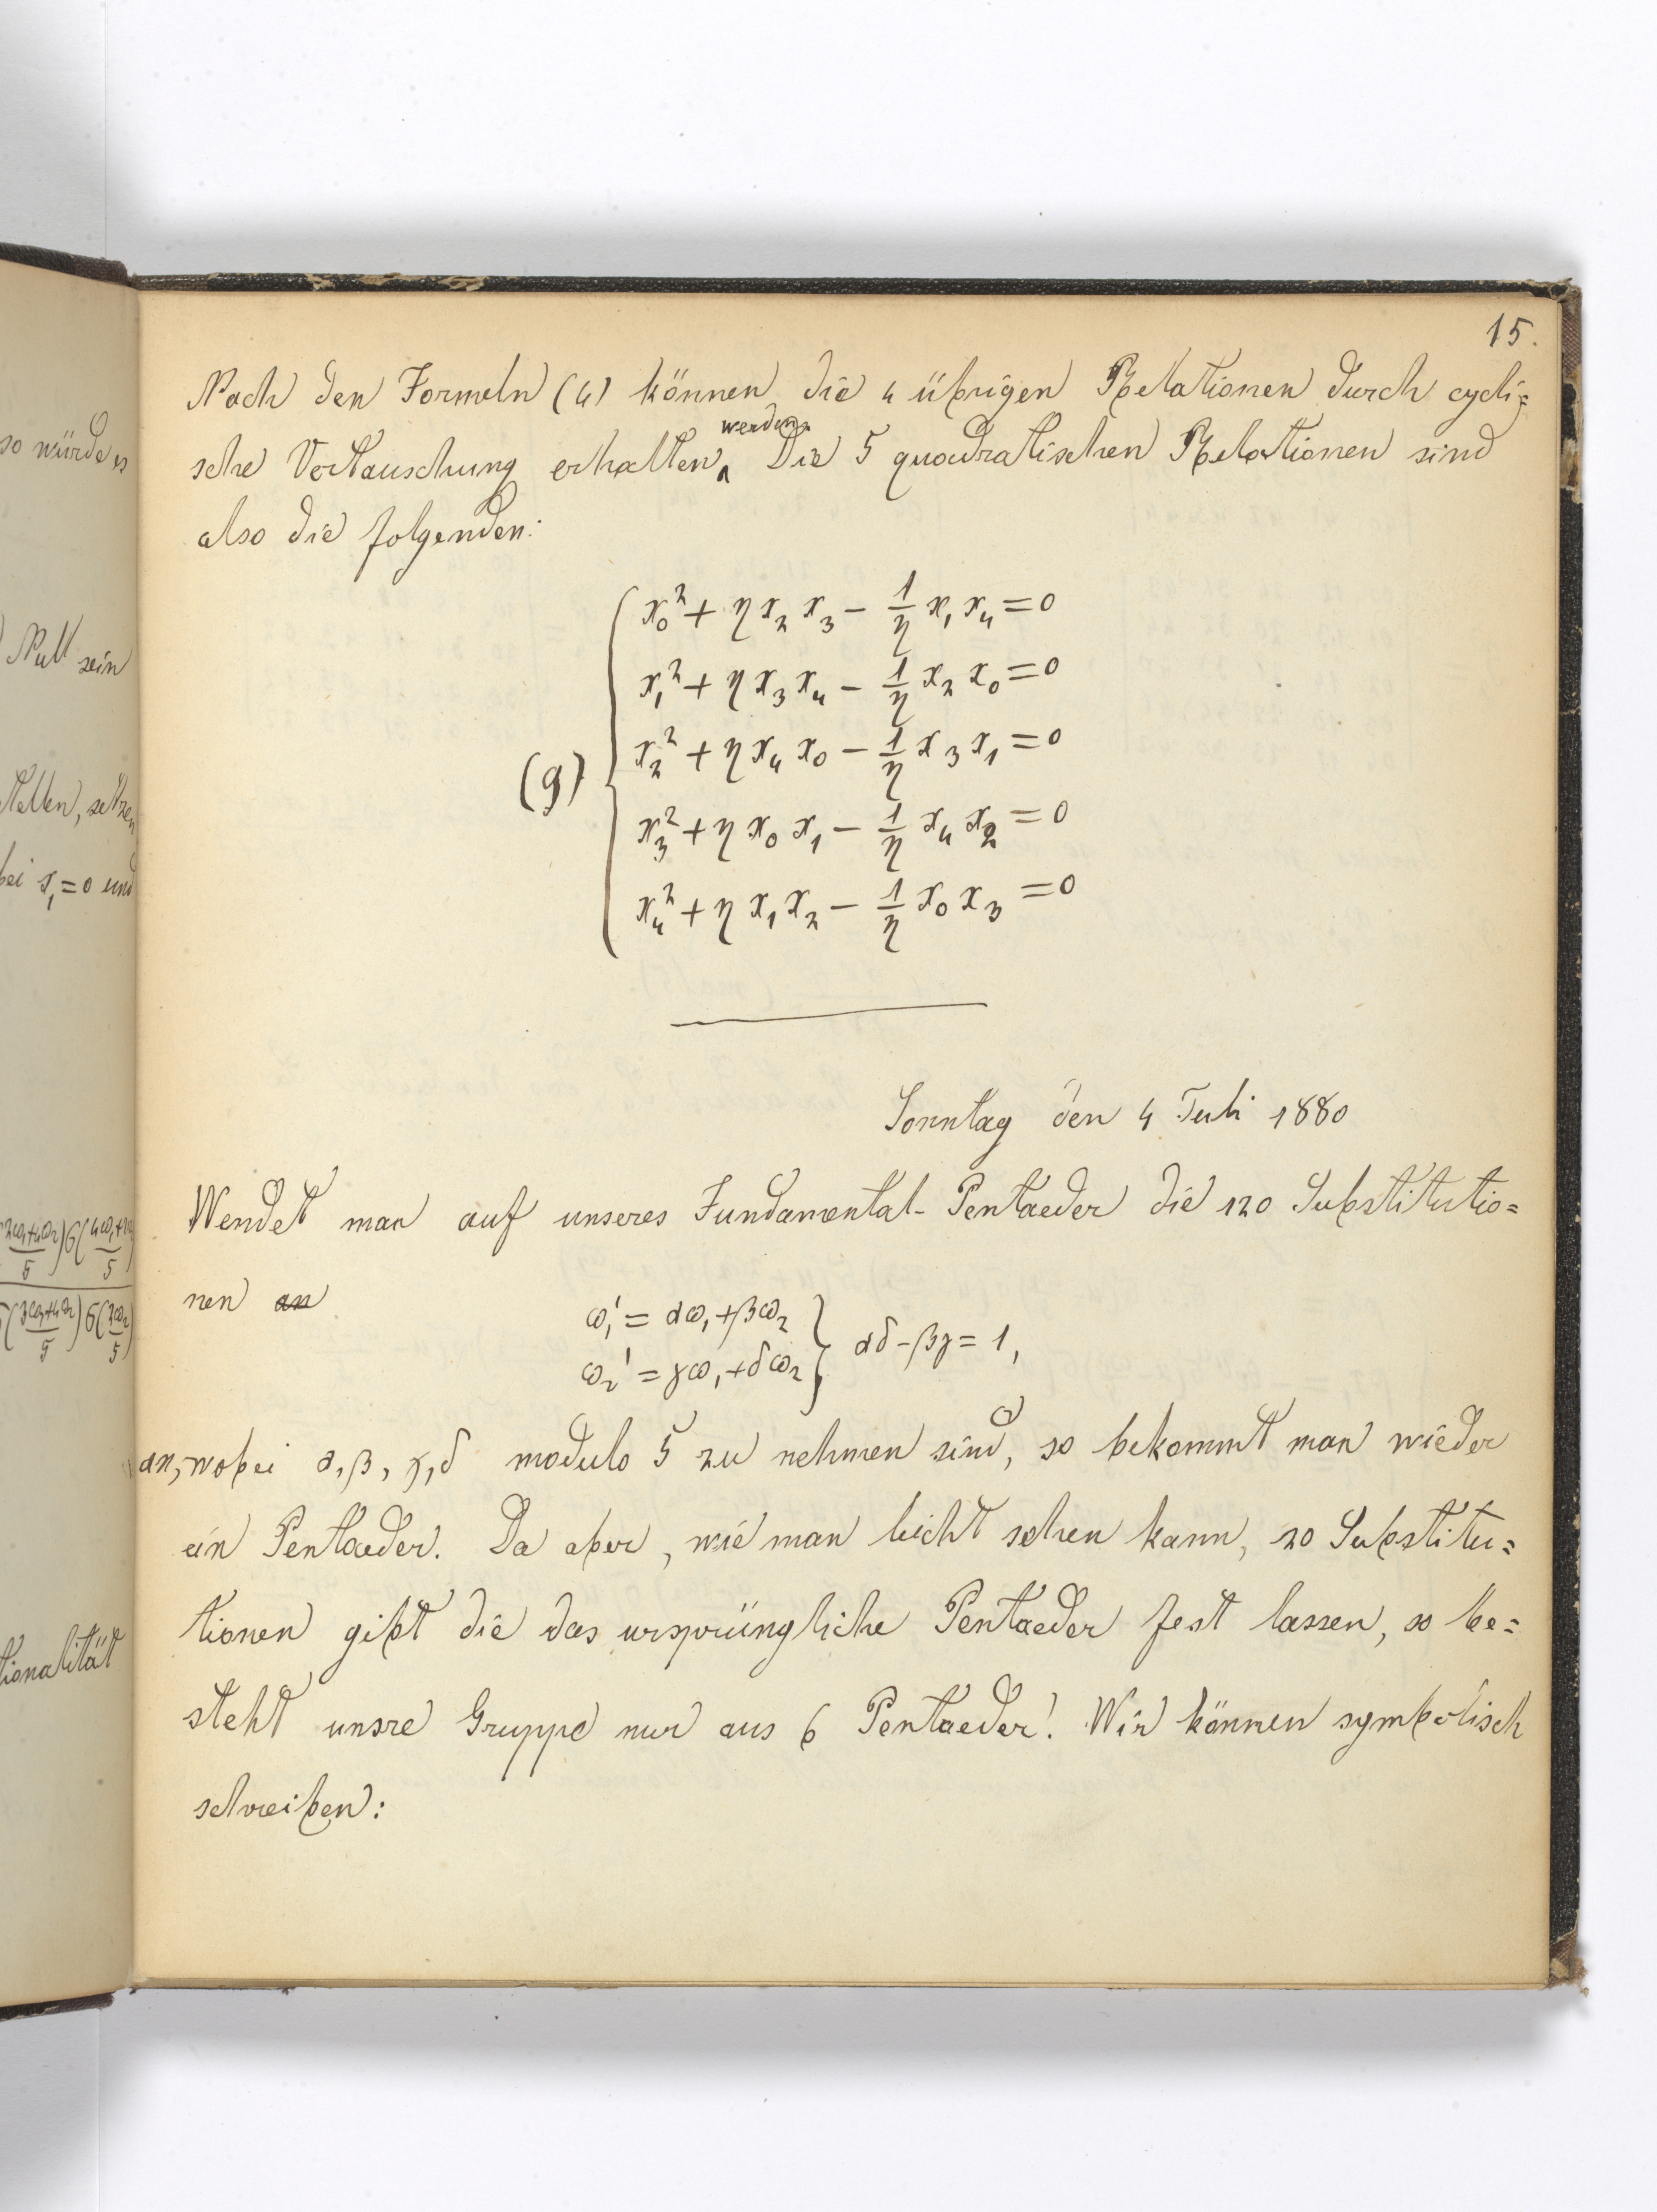 so würde es
Null sein
stellen, setzen
bei x₁ = 0 und
tionalität
15.
Nach den Formeln (4) können die 4 übrigen Relationen durch cycli=
sche Vertauschung erhalten werden. Die 5 quadratischen Relationen sind
also die folgenden:
x₀² + η x₂ x₃ − 1/η x₁ x₄ = 0
x₁² + η x₃ x₄ − 1/η x₂ x₀ = 0
(9) x₂² + η x₄ x₀ − 1/η x₃ x₁ = 0
x₃² + η x₀ x₁ − 1/η x₄ x₂ = 0
x₄² + η x₁ x₂ − 1/η x₀ x₃ = 0
Sonntag den 4 Juli 1880
Wendet man auf unseres Fundamental-Pentaeder die 120 Substitutio=
nen an
ω₁' = αω₁ + βω₂
ω₂' = γω₁ + δω₂ } αδ − βγ = 1,
an, wobei α, β, γ, δ modulo 5 zu nehmen sind, so bekommt man wieder
ein Pentaeder. Da aber, wie man leicht sehen kann, 20 Substitu=
tionen gibt die das ursprüngliche Pentaeder fest lassen, so be=
steht unsre Gruppe nur aus 6 Pentaeder! Wir können symbolisch
schreiben: